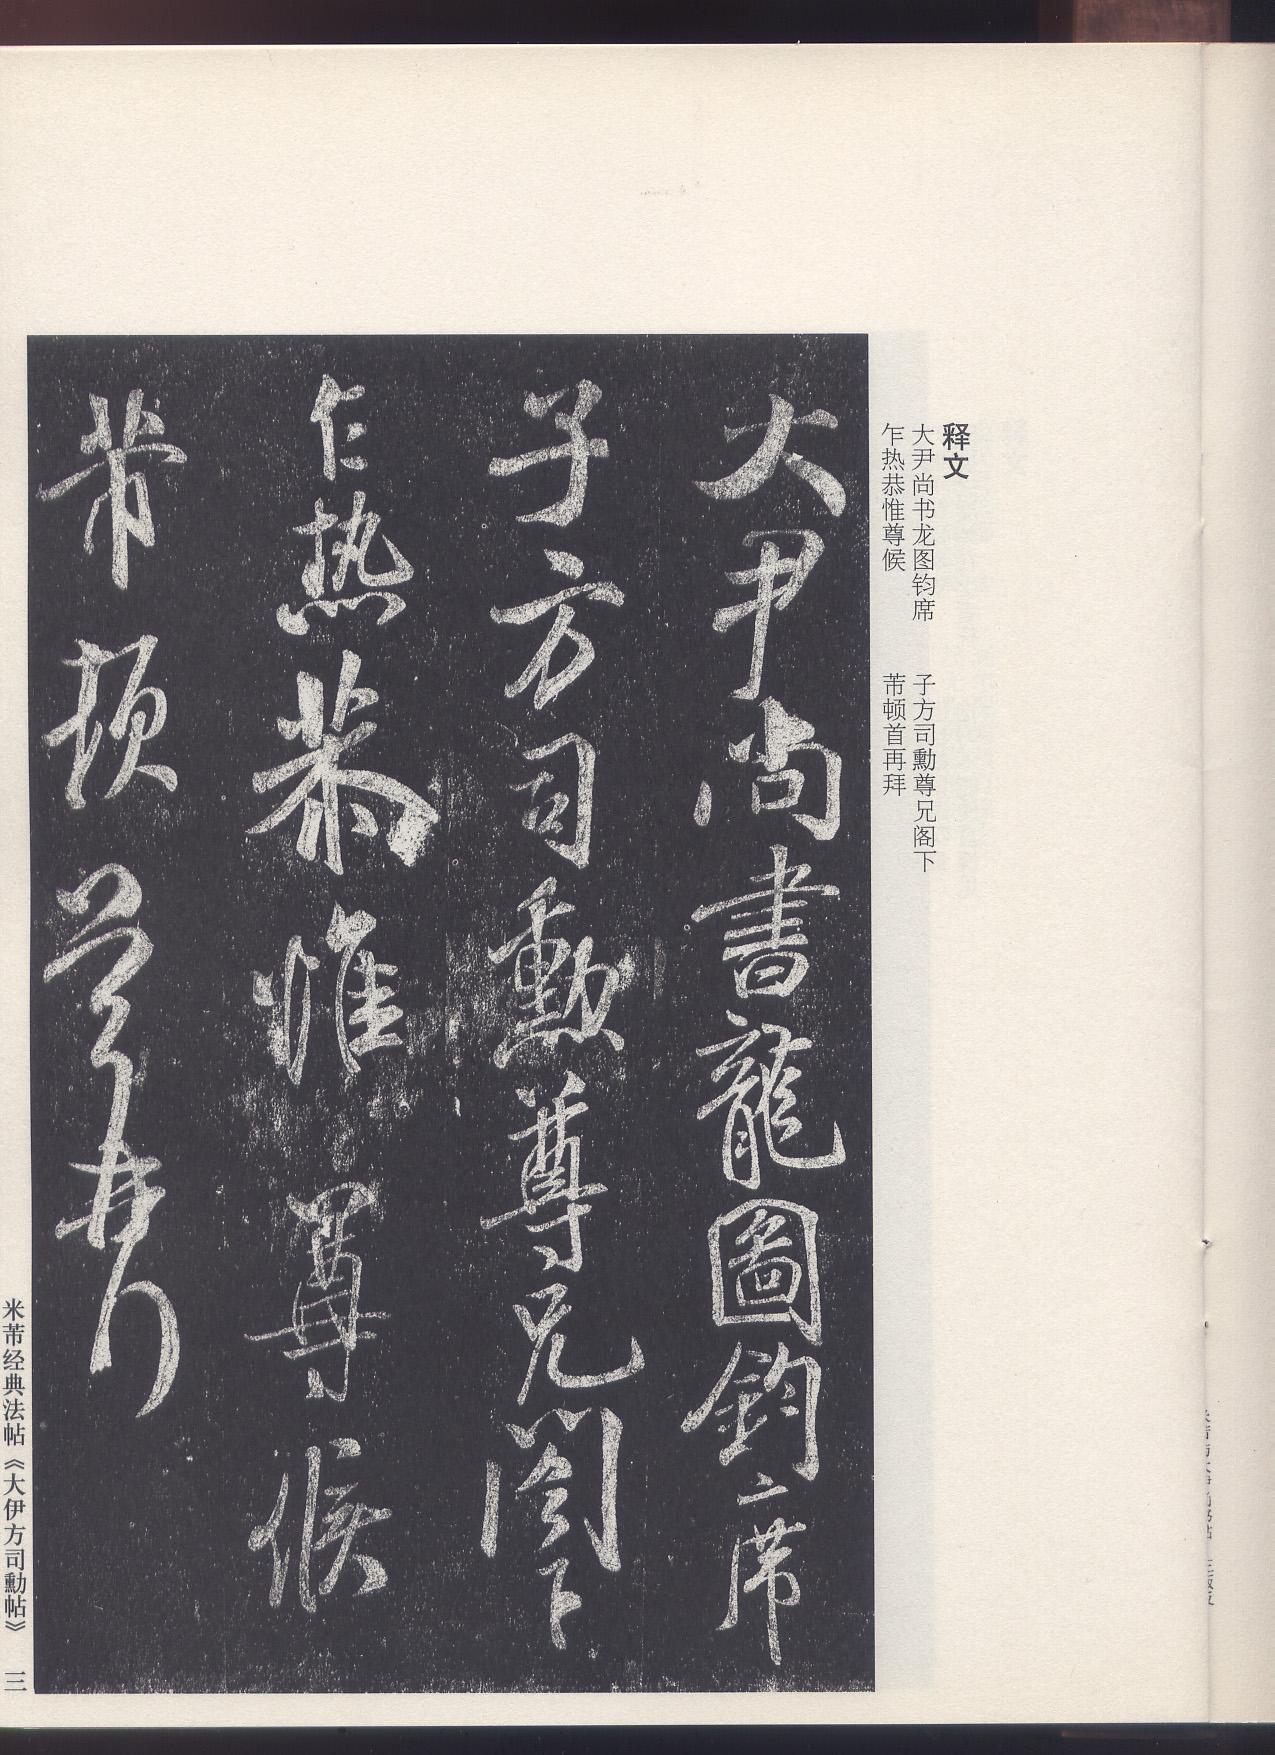 释文
大尹尚书龙图钧席 子方司勳尊兄阁下
乍热恭惟尊候 芾顿首再拜
大尹尚書龍圖鈞席
子方司勳尊兄閣下
乍热恭惟尊候
芾頓首再拜
米芾经典法帖《大伊方司勳帖》 三